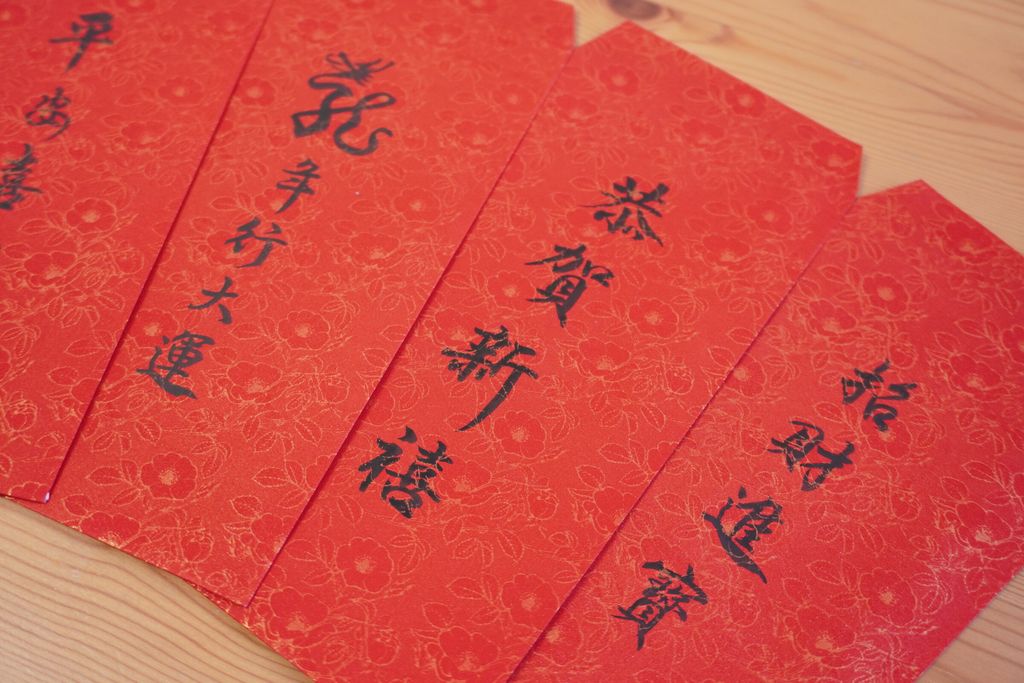 平安喜
龍年行大運
恭賀新禧
招財進寶